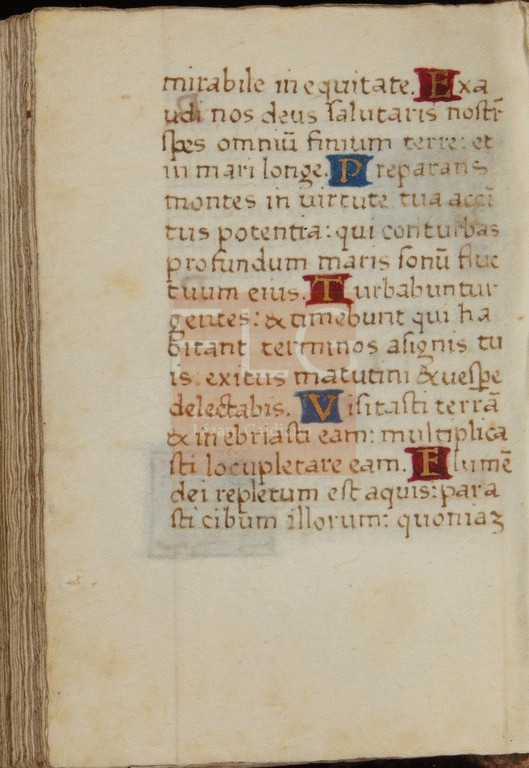 mirabile in equitate. Exa
udi nos deus salutaris nostr̃
spes omniũ finium terre: et
in mari longe. Preparans
montes in uirtute tua acci
tus potentia: qui conturbas
profundum maris sonũ fluc
tuum eius. Turbabuntur
gentes: & timebunt qui ha
bitant terminos asignis tu
is: exitus matutini & uespe
delectabis. Visitasti terrã
& in ebriasti eam: multiplica
sti locupletare eam. Flumẽ
dei repletum est aquis: para
sti cibum illorum: quoniaʒ
FLG